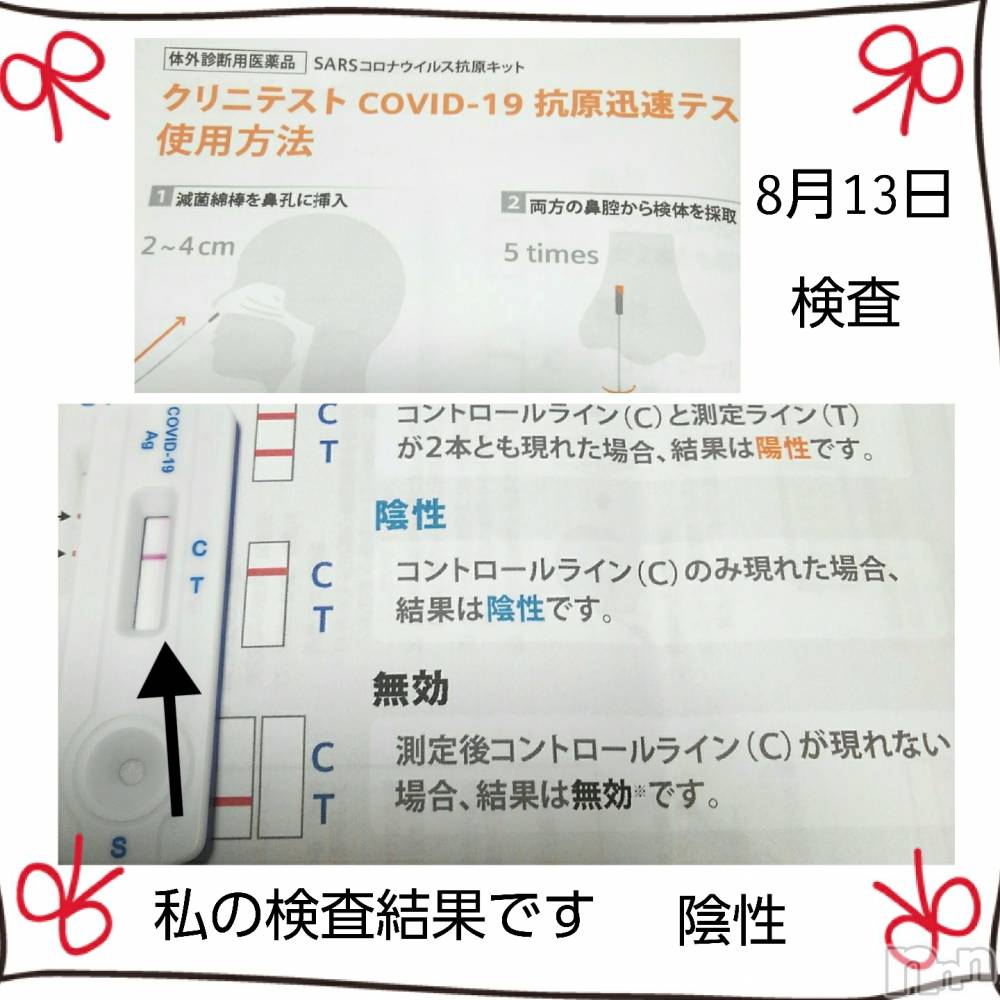 体外診断用医薬品 SARSコロナウイルス抗原キット
クリニテスト COVID-19 抗原迅速テス
使用方法
1 滅菌綿棒を鼻孔に挿入
2~4cm
2 両方の鼻腔から検体を採取
5 times
8月13日
検査
COVID-19
Ag
C
T
S
C
T
コントロールライン(C)と測定ライン(T)
が2本とも現れた場合、結果は陽性です。
陰性
C
T
コントロールライン(C)のみ現れた場合、
結果は陰性です。
無効
C
T
測定後コントロールライン(C)が現れない
場合、結果は無効※です。
私の検査結果です 陰性